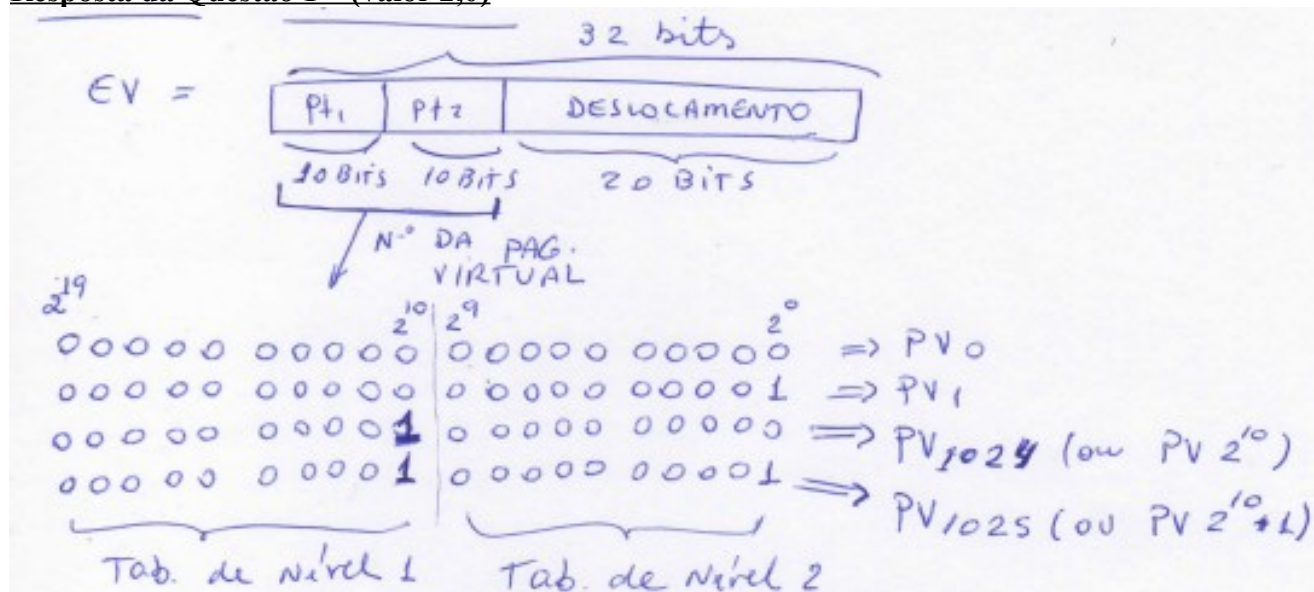 Resposta da Questão 1 - (valor 2,0)
32 bits
EV =
Pt1 Pt2 DESLOCAMENTO
10 Bits 10 BiTS 20 BiTS
Nº DA PAG.
VIRTUAL
2^19 2^10 2^9 2^0
00000 00000 00000 00000 => PV0
00000 00000 00000 00001 => PV1
00000 00001 00000 00000 => PV1024 (ou PV 2^10)
00000 00001 00000 00001 => PV1025 (ou PV 2^10+1)
Tab. de Nível 1 Tab. de Nível 2